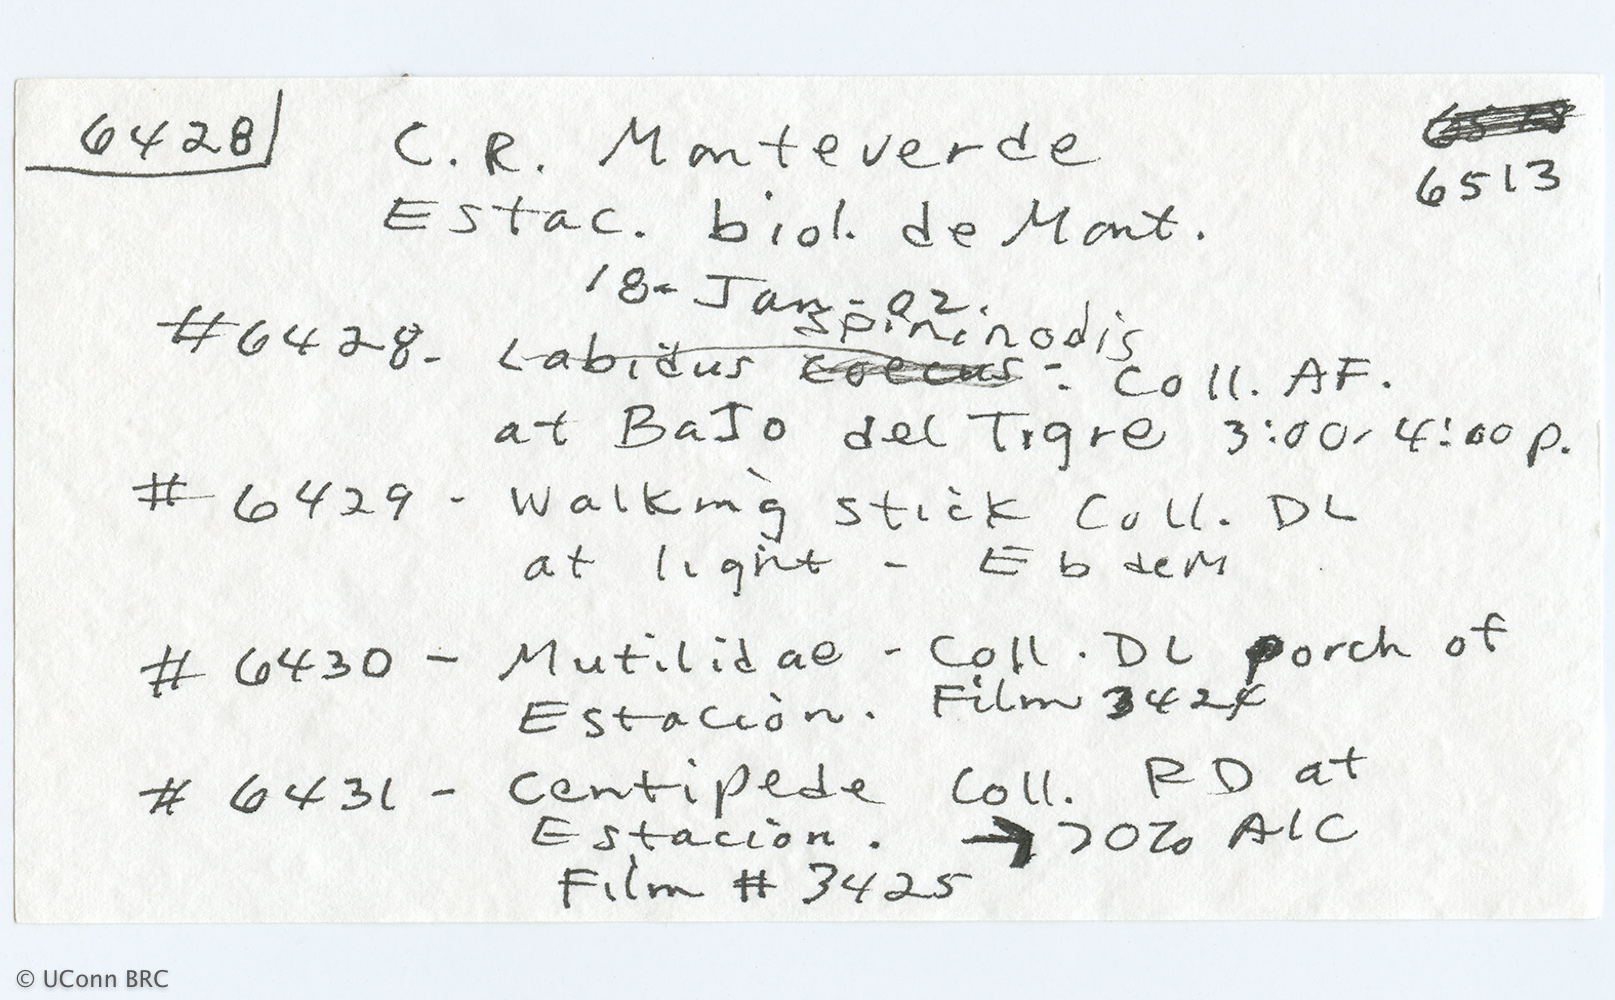 6428
C. R. Monteverde
6513
Estac. biol. de Mont.
18-Jan-02.
spininodis
#6428- Labidus coecus -. Coll. AF.
at BaJo del Tigre 3:00-4:00 p.
# 6429 - Walking stick Coll. DL
at light - E b deM
# 6430 - Mutilidae - Coll. DL porch of
Estación. Film 3424
# 6431 - Centipede Coll. RD at
Estación. → 70% AlC
Film # 3425
© UConn BRC